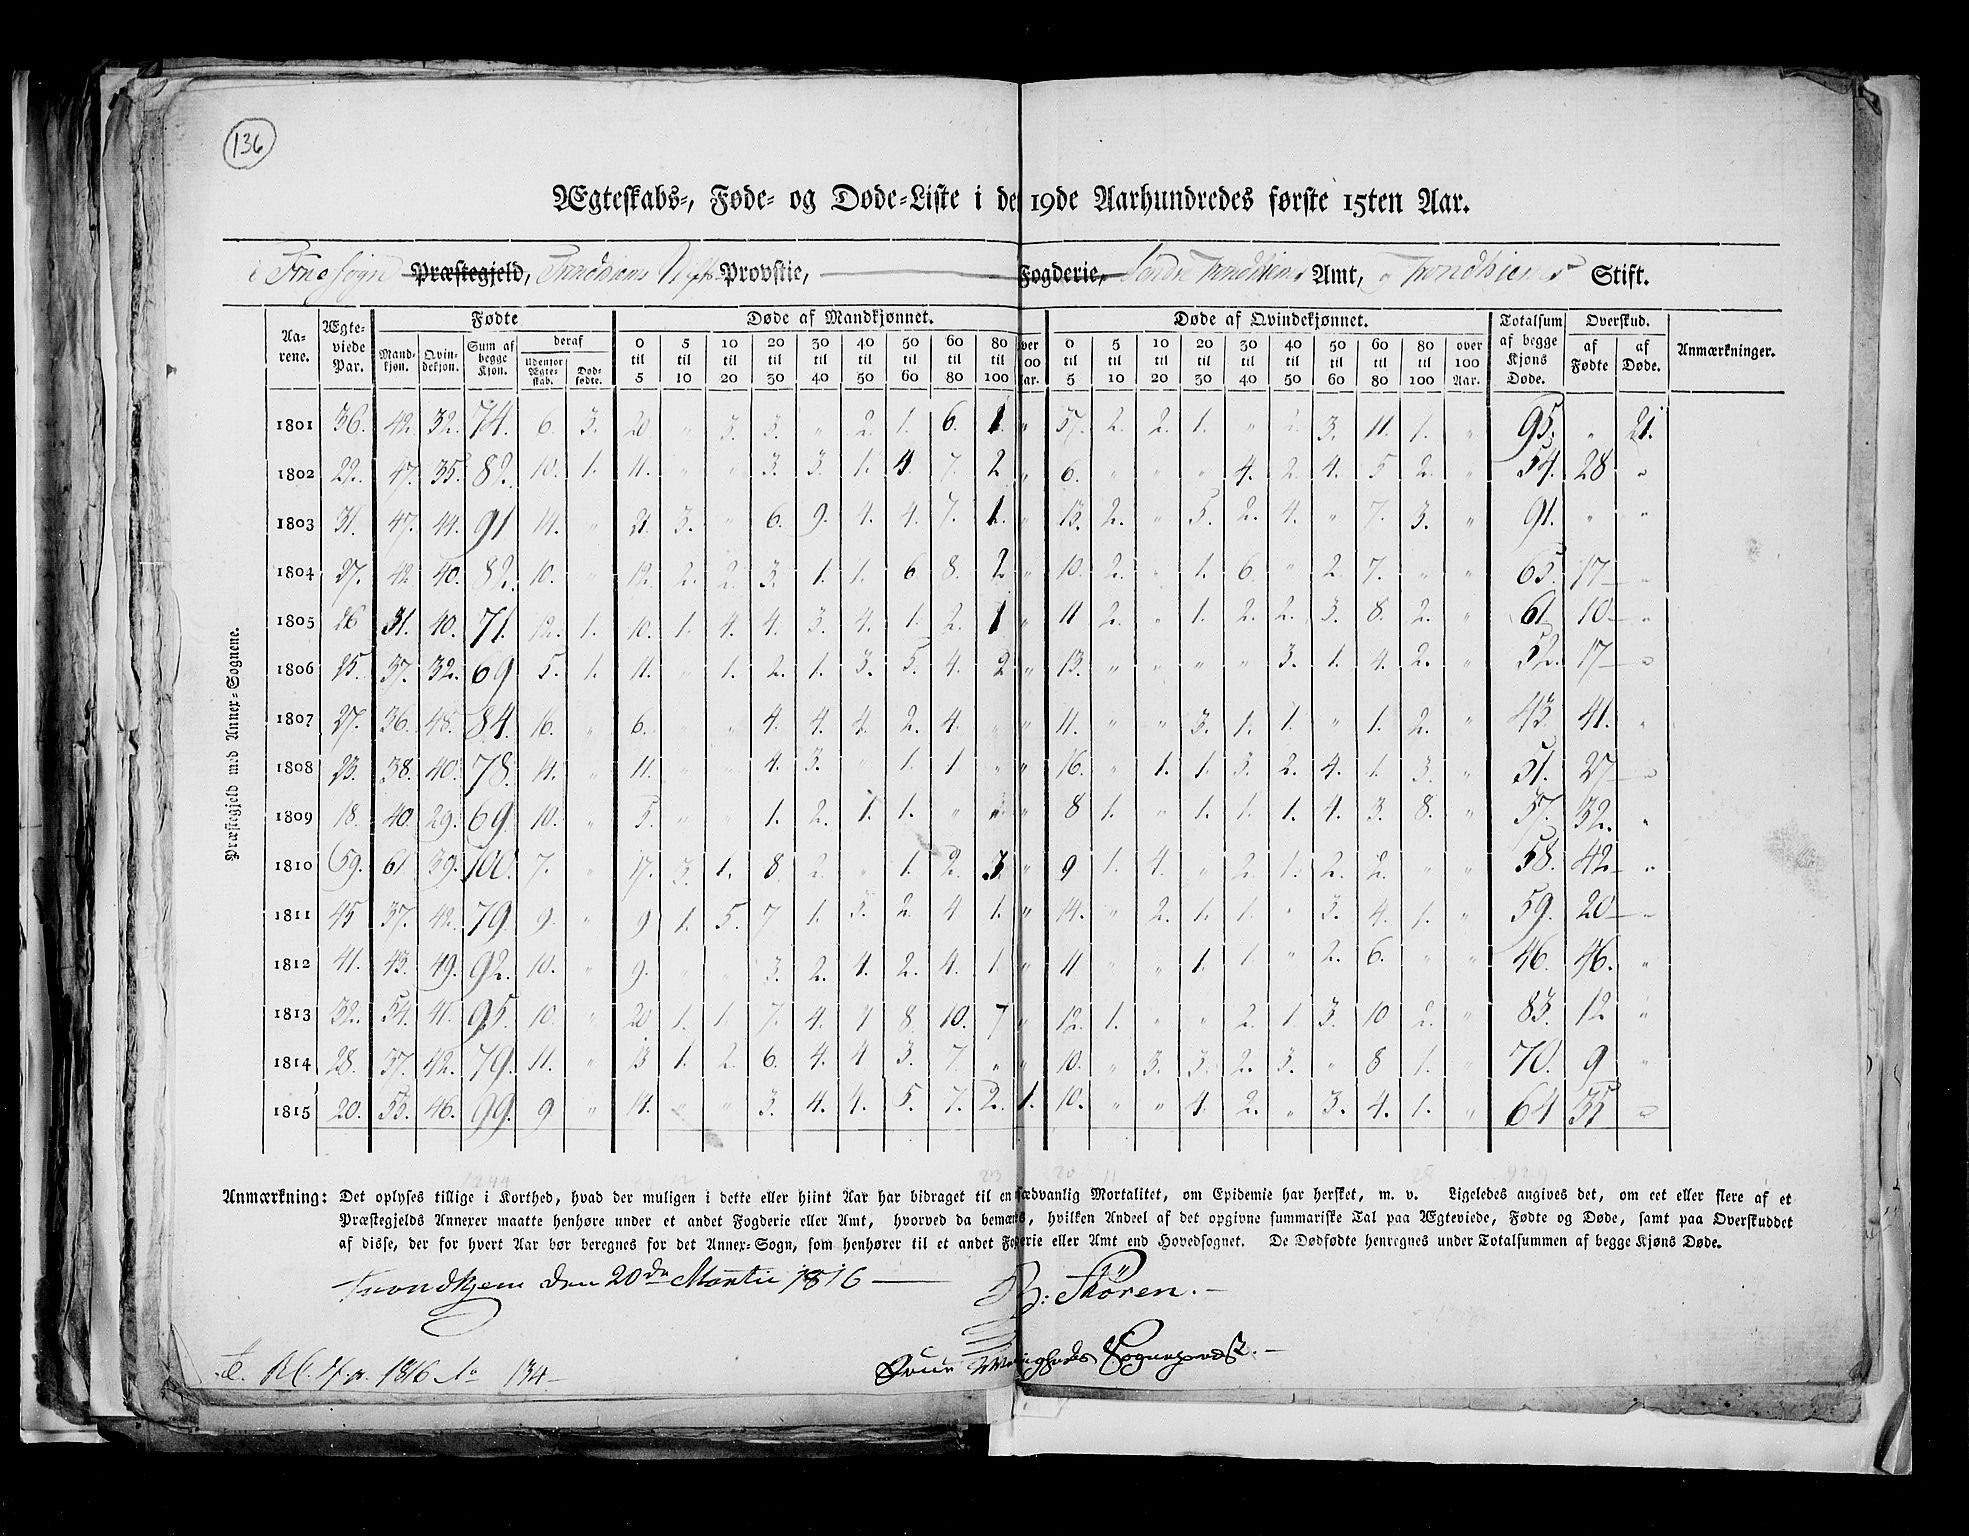 136
Ægteskabs-, Føde- og Døde-Liste i de 19de Aarhundredes første 15ten Aar.
Præstegjeld, Provstie, Fogderie, Amt, Stift.
Præstegjeld med Annex-Sognene.
Aarene. Ægteviede Par. Fødte Døde af Mandkjønnet. Døde af Qvindekjønnet. Totalsum af begge Kjøns Døde. Overskud. Anmærkninger.
Mandkjøn. Qvindekjøn. Sum af begge Kjøn. deraf Udenfor Ægteskab. Dødfødte. 0 til 5 5 til 10 10 til 20 20 til 30 30 til 40 40 til 50 50 til 60 60 til 80 80 til 100 0 til 5 5 til 10 10 til 20 20 til 30 30 til 40 40 til 50 50 til 60 60 til 80 80 til 100 over 100 Aar. af Fødte af Døde.
1801 36. 42. 32. 74. 6. 3. 20. " 3. 3. " 2. 1. 6. 1. " 37. 2. 2. 1. " 2. 3. 11. 1. " 95. " 21.
1802 22. 47. 35. 82. 10. 1. 11. " " 3. 3. 1. 4. 7. 2 " 6. " " " 4. 2. 4. 5 2. " 54. 28 "
1803 31. 47. 44. 91 14. " 21 3. " 6. 9. 4. 4. 7. 1. " 13. 2. " 5. 2. 4. " 7. 3. " 91. " "
1804 27. 42. 40. 82. 10. " 12. 2. 2. 3. 1. 1. 6 8. 2 " 10. 2. " 1. 6. " 2. 7. " " 65. 17 "
1805 26 31. 40. 71. 12. 1. 10. 1. 4. 4. 3. 4. 1. 2. 1 " 11 2. " 1. 2. 2. 3. 8. 2. " 61 10 "
1806 25. 37. 32. 69 5. 1. 11. " 1. 2. 1. 3. 5. 4. 2 " 13. " " " " 3. 1. 4. 2. " 52. 17 "
1807 27. 36. 48. 84. 16. " 6. " " 4. 4. 4. 2. 4. " " 11. " " 3. 1. 1. " 1. 2. " 43. 41. "
1808 23. 38. 40. 78. 14. " 11. " " 4. 3. " 1. 1 " " 16. " 1. 1. 3. 2. 4. 1. 3. " 51. 27 "
1809 18. 40. 29. 69. 10. " 5. " " 1. 2. 1. 1. " " " 8 1. " 1. 1. 1. 4. 3. 8. " 37. 32. "
1810 59. 61 39. 100. 7. " 17. 3. 1. 8 2. " 1. 2. 3. " 9 1. 4. " 2. 1. 2. 2. " " 58. 42 "
1811 45 37. 42. 79. 9. " 9 1. 5. 7 1. 5. 2. 4 1. " 14. " 2. 1. 1. " 3. 4. 1. " 59. 20 "
1812 41. 43. 49. 92. 10. " 9. " " 3. 2. 4. 2. 4. 1. " 11 " " 1. 1. " 2. 6. " " 46. 46. "
1813 32. 54. 41. 95. 10. " 20 1. 1. 7. 4. 4 8. 10. 7 " 12. 1. " " 2. 1. 3. 10 2. " 83. 12 "
1814 28. 37. 42. 79. 11. " 13 1. 2. 6. 4. 4 3. 7. " " 10. " 3. 3. 2. 3. " 8 1. " 70. 9 "
1815 20. 53. 46. 99. 9 " 14. " " 3. 4. 4. 5. 7. 2. 1. 10. " " 4. 2. " 3. 4. 1. " 64 35 "
Anmærkning: Det oplyses tillige i Korthed, hvad der muligen i dette eller hiint Aar har bidraget til en sædvanlig Mortalitet, om Epidemie har hersket, m. v. Ligeledes angives det, om eet eller flere af et
Præstegjelds Annexer maatte henhøre under et andet Fogderie eller Amt, hvorved da bemærkes, hvilken Andeel af det opgivne summariske Tal paa Ægteviede, Fødte og Døde, samt paa Overskuddet
af disse, der for hvert Aar bør beregnes for det Annex-Sogn, som henhører til et andet Fogderie eller Amt end Hovedsognet. De Dødfødte henregnes under Totalsummen af begge Kjøns Døde.
Trondhjem den 20de Martii 1816
1816 No 134